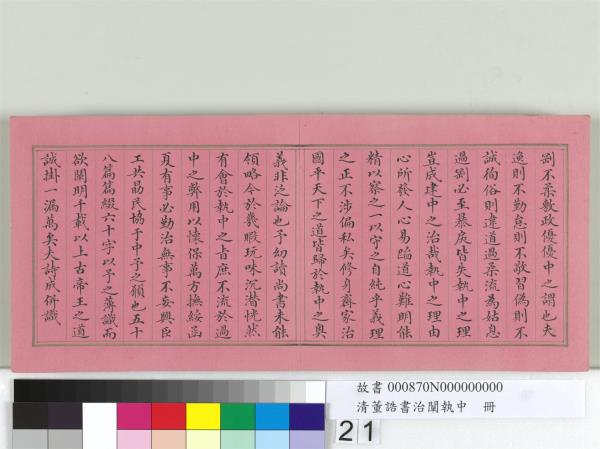 剛不柔敷政優優中之謂也夫
逸則不勤怠則不敬習偽則不
誠徇俗則違道過柔流為姑息
過剛必至暴戾皆失執中之理
豈成建中之治哉執中之理由
心所發人心易陷道心難明能
精以察之一以守之自純乎義理
之正不涉偏私矣修身齊家治
國平天下之道皆歸於執中之奧
義非泛論也予幼讀尚書未能
領略今於幾暇玩味沉潛恍然
有會於執中之旨庶不流於過
中之弊用以懷保萬方撫綏函
夏有事必勤治無事不妄興臣
工共勗民協于中予之願也五十
八篇篇綴六十字以予之薄識而
欲闡明千載以上古帝王之道
誠掛一漏萬矣夫詩成併識
故書 000870N000000000
清董誥書治闡執中 冊
21